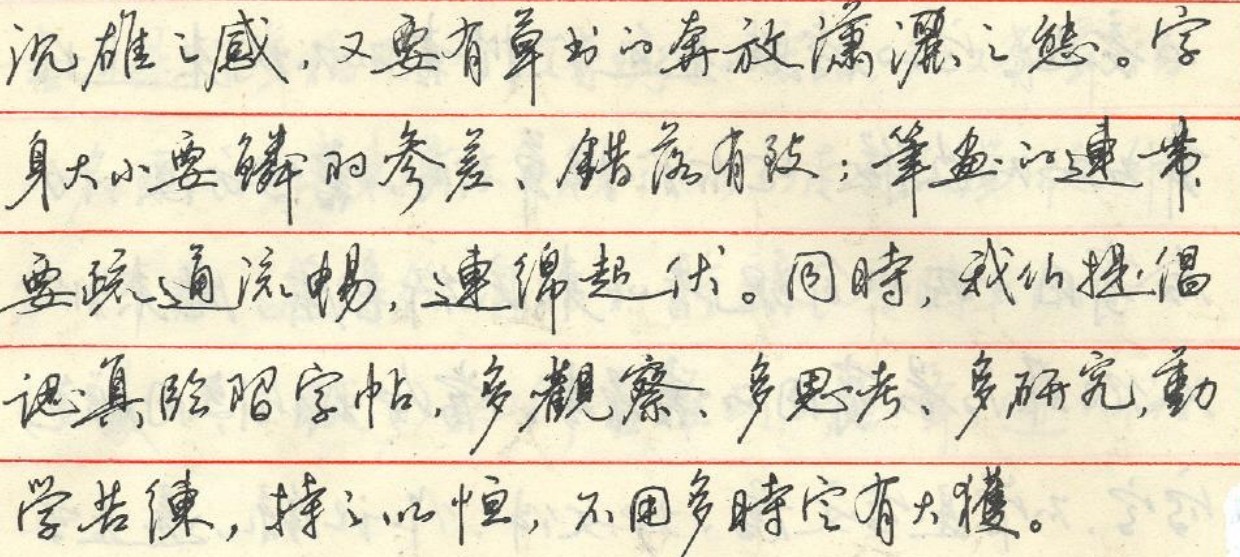 沉雄之感，又要有草书的奔放潇灑之態。字
身大小要鱗的參差、錯落有致；筆画的連帶
要疏通流暢，連綿起伏。同時，我们提倡
認真临習字帖，多觀察、多思考、多研究，勤
学苦練，持之以恒，不用多時定有大獲。